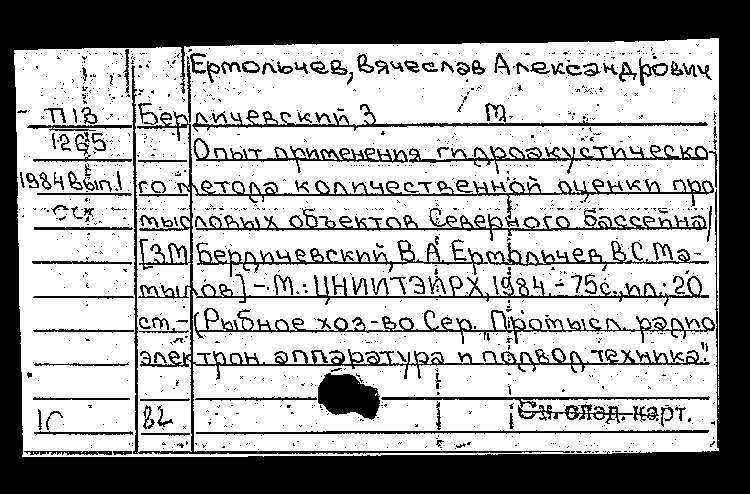 Ермольчев, Вячеслав Александрович
П13 Бердичевский, З М
1265 Опыт применения гидроакустическо-
1984 Вып.1 го метода количественной оценки про
мысловых объектов Северного бассейна/
[ЗМ Бердичевский, В.А Ермольчев, В.С. Ма-
тылов] - М.: ЦНИИТЭИРХ, 1984. - 75с., ил.; 20
см. - (Рыбное хоз-во Сер. "Промысл. радио
электрон. аппаратура и подвод. техника".
82 См. след. карт.